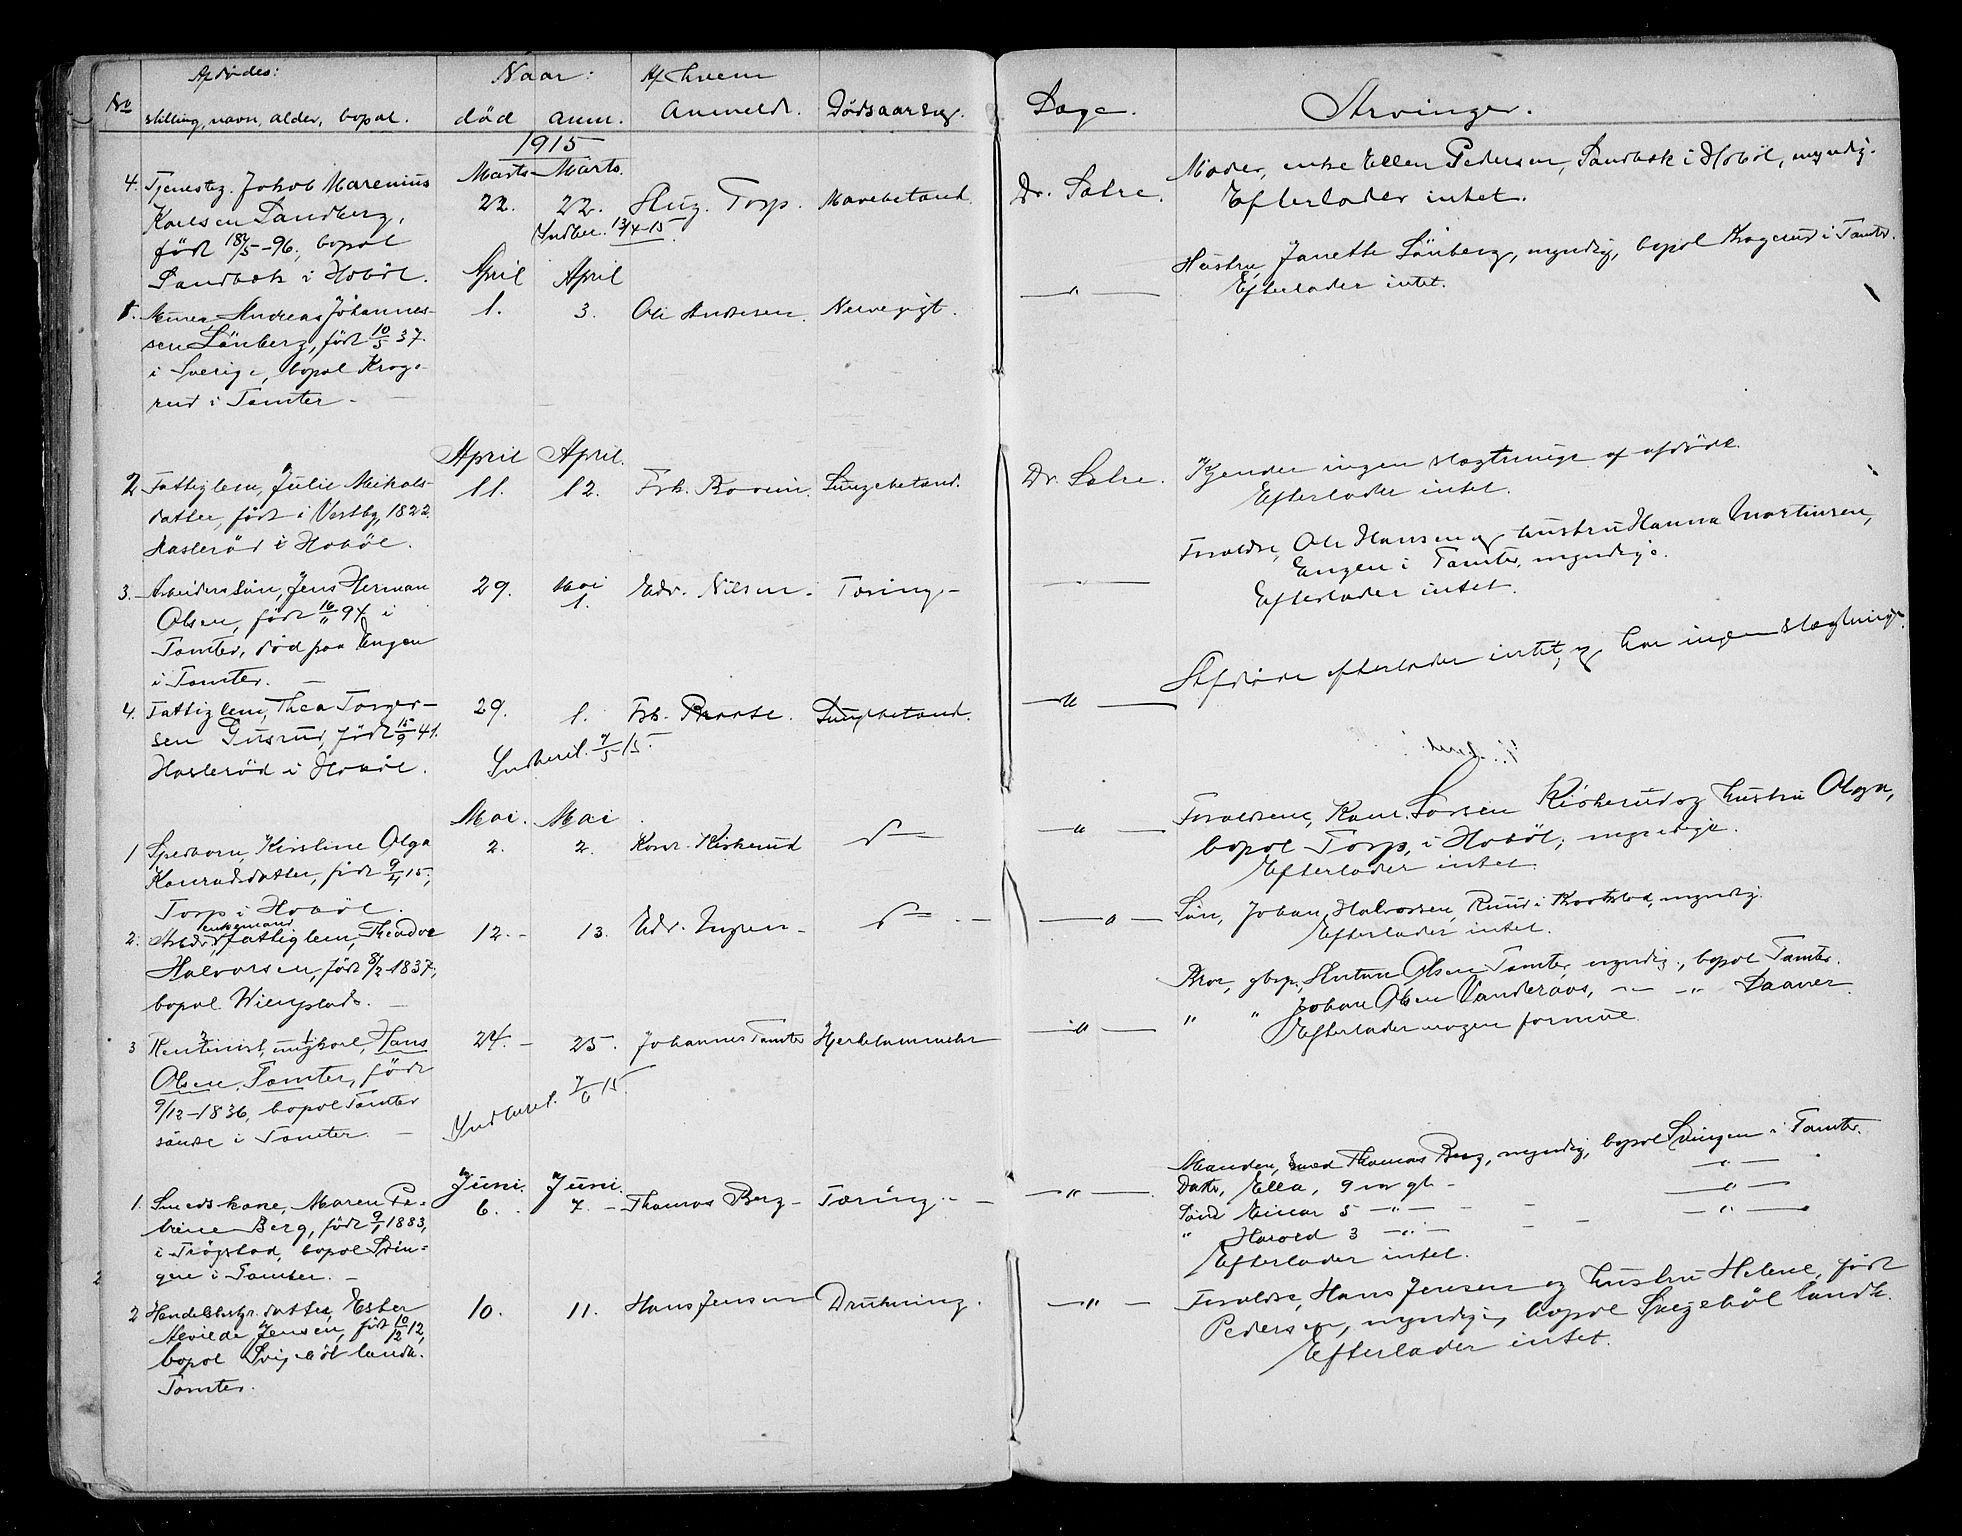 Afdødes:
Naar:
Af hvem
No
stilling, navn, alder, bopæl.
død
anm.
Anmeldt.
Dødsaarsag.
Læge.
Arvinger.
1915
Marts
Marts.
4. Tjenesteg. Jakob Marenius
Karlsen Sandberg,
født 18/5-96, bopæl
Sandbæk i Hobøl.
22.
22.
Indber. 13/4-15
Aug. Torp.
Mavebetænd.
Dr. Salre.
Moder, enke Ellen Pedersen, Sandbæk i Hobøl, myndig.
Efterlader intet.
April
April
5. Andreas Johannes-
sen Lönberg, født 10/5 37.
i Sverige, bopæl Krog-
rud i Tomter -
1.
3.
Ole Andersen.
Nervegigt.
— " —
Hustru, Janette Lönberg, myndig, bopæl Krogerud i Tomter.
Efterlader intet.
April
April.
2 Fattiglem, Julie Mikals-
datter, født i Vestby, 1822.
Haslerød i Hobøl.
11.
12.
Frk.
Lungebetænd.
Dr. Salre.
Kjender ingen slægtninge af afdøde.
Efterlader intet.
3. Arbeiders søn, Jens Herman
Olsen, født 16/11 94 i
Tomter, død paa Engen
i Tomter. —
29.
Mai
1.
Edv. Nilsen.
Tæring -
— " —
Forældre, Ole Hansen og hustru Hanna Martinsen,
Engen i Tomter, myndige.
Efterlader intet.
4. Fattiglem, Thea Torger-
sen Gusrud, født 15/9 41.
Haslerød i Hobøl.
29.
1.
Indberet. 7/5-15.
Frk.
Lungebetænd.
— " —
Afdøde efterlader intet, og har ingen slægtninge.
Mai.
Mai
1 Spedbarn, Kirstine Olga
Konradsdatter, født 9/4 15,
Torp i Hobøl.
2.
2.
Konr. Kirkerud
— " —
Forældrene, Konr. Larsen Kirkerud og hustru Olga,
bopæl Torp, i Hobøl, myndige.
Efterlader intet.
enkemand
2. Arbdr. fattiglem, Theodor
Halvorsen, født 8/2 1837,
bopæl —
12. -
13.
Edv. -
— " —
Søn, Johan Halvorsen, Ruud i Kraakstad, myndig.
Efterlader intet.
3 Rentenist, ungkarl, Hans
Olsen Tomter, født
9/12-1836, bopæl Tomter
søndre i Tomter. —
24. -
25.
Indberet. 7/6 15.
Johannes Tomter
Hjertelammelse
— " —
Bror, gbr. Anton Olsen Tomter, myndig, bopæl Tomter.
" " Johan Olsen Vanderaas, — " — " Daaner.
Efterlader nogen formue
Juni.
Juni.
1. Smedskone, Maren Pe-
trine Berg, født 9/1 1883,
i Trøgstad, bopæl Svin-
gen i Tomter. —
6.
7. -
Thomas Berg -
Tæring. -
— " —
Manden, smed Thomas Berg, myndig, bopæl Svingen i Tomter.
Datter, Ella, 9 aar gl - — " —
Sønn Einar 5 — " — - — " —
" Harald 3 — " — - — " —
Efterlader intet.
2 Handelsbestyr. datter, Ester
Alvilde Jensen, født 10/12 12,
bopæl Svigebøl landh.
Tomter.
10.
11.
Hans Jensen
Drukning.
— " —
Forældre, Hans Jensen og hustru Helene, født
Pedersen, myndige, bopæl Svigebøl landh.
Efterlader intet.